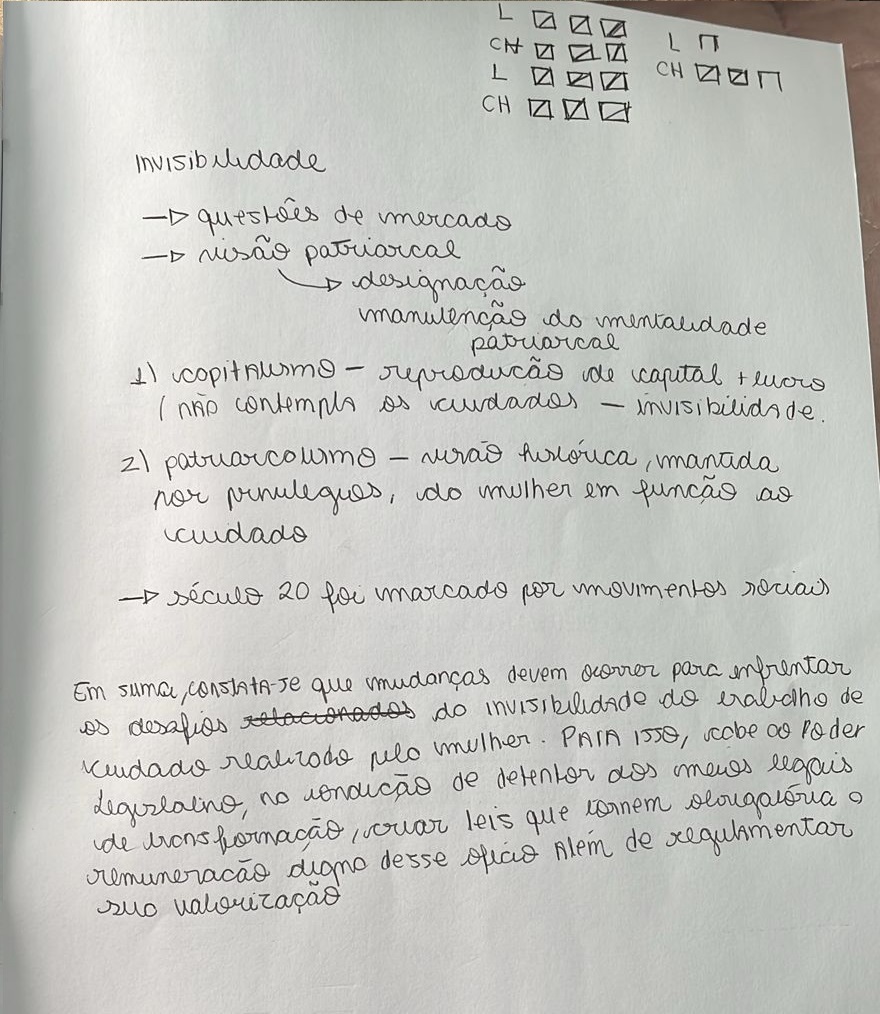 L
CH
L
CH
L
CH
Invisibilidade
→ questões de mercado
→ visão patriarcal
→ designação
manutenção da mentalidade
patriarcal
1) capitalismo – reprodução de capital + lucro
(não contempla os cuidados – invisibilidade.
2) patriarcalismo – visão histórica, mantida
por privilégios, da mulher em função ao
cuidado
→ século 20 foi marcado por movimentos sociais
Em suma, constata-se que mudanças devem ocorrer para enfrentar
os desafios relacionados da invisibilidade do trabalho de
cuidado realizado pela mulher. Para isso, cabe ao Poder
Legislativo, na condição de detentor dos meios legais
de transformação, criar leis que tornem obrigatória a
remuneracão digna desse ofício Além de regulamentar
sua valorização